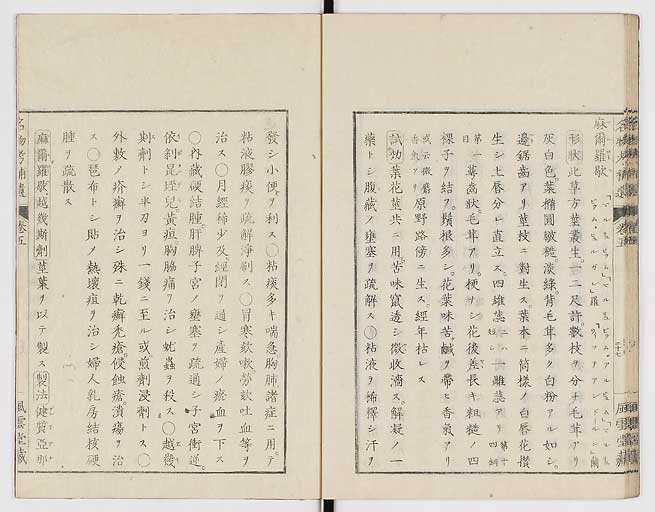 麻爾羅歇
形状此草方莖叢生一二尺許數枝ヲ分チ毛茸アリ
灰白色葉橢圓皺縬淡緑背毛茸多ク白粉アル如シ
邊鋸齒アリ莖枝ニ對生ス葉本ニ筒樣ノ白唇花攅
生シ上唇分レ直立ス四雄蕊二ハ長二ハ短シ一雌蕊アリ第十四綱
第一目萼齒狀アリ梗ナシ花後差長キ粗糙ノ四
稞子ヲ結フ鬚根多シ花葉味苦鹹ヲ帶ヒ香氣アリ
或云微麝香氣アリ原野路傍ニ生ス經年枯レス
試功葉花莖共ニ用苦味竄透シ微收濇ス解凝ノ一
藥トシ腹藏ノ壅塞ヲ疏解ス〇粘液ヲ稀釋シ汗ヲ
發シ小便ヲ利ス〇粘痰多キ喘急胸肺諸症ニ用テ
粘液膠痰ヲ疏解淨刷ス〇冒寒欬嗽勞欬吐血等ヲ
治ス〇月經稀少及經閉ヲ通シ産婦ノ瘀血ヲ下ス
〇内藏硬結腫肝脾子宮ノ壅塞ヲ疏通シ子宮衝逆
依剝昆垤兒黄疸胸脇痛ヲ治シ蚘蟲ヲ殺ス〇越幾
斯劑トシ半刀ヨリ一錢ニ至ル或煎劑浸劑トス〇
外敷ノ疥癬ヲ治シ殊ニ乾癬禿瘡侵蝕瘡潰瘍ヲ治
ス〇琶布トシ貼メ熱壊疽ヲ治シ婦人乳房結核硬
腫ヲ疏散ス
麻爾羅歇越幾斯劑莖葉ヲ以テ製ス製法健質亞那
名物考補遺 卷五
風雲堂藏